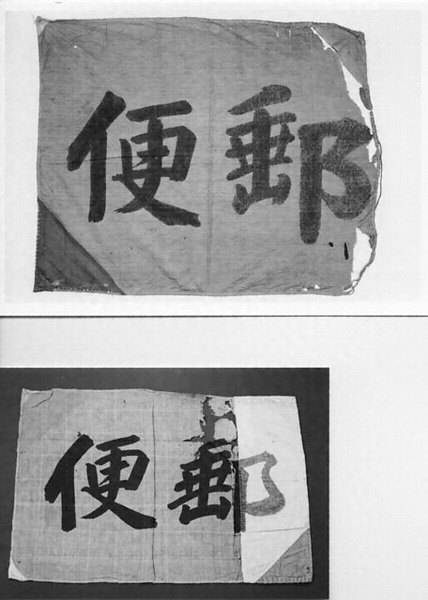 郵便
郵便